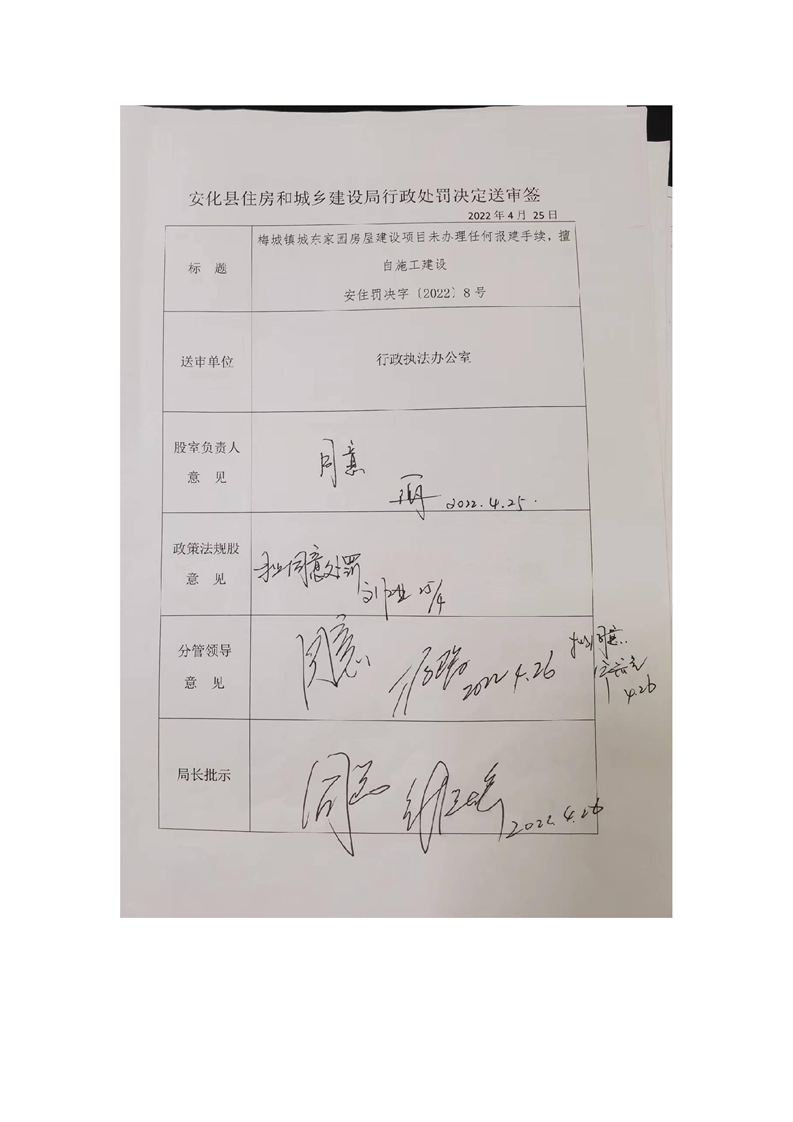 安化县住房和城乡建设局行政处罚决定送审签
2022年4月25日
标 题
梅城镇城东家园房屋建设项目未办理任何报建手续，擅
自施工建设
安住罚决字〔2022〕8号
送审单位
行政执法办公室
股室负责人
意 见
同意
2022.4.25.
政策法规股
意 见
同意处罚
25/4
分管领导
意 见
同意
2022.4.26
同意
4.26
局长批示
同意
2022.4.26